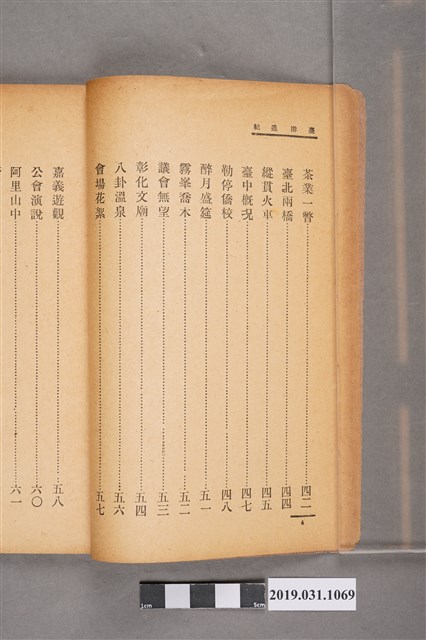 臺游追紀
茶業一瞥……四二
臺北兩橋……四四
縱貫火車……四五
臺中概況……四七
勒停僑校……四八
醉月盛筵……五一
霧峯喬木……五二
議會無望……五三
彰化文廟……五四
八卦溫泉……五六
會場花絮……五七
4
嘉義遊觀……五八
公會演說……六〇
阿里山中……六一
1cm
5cm
2019.031.1069